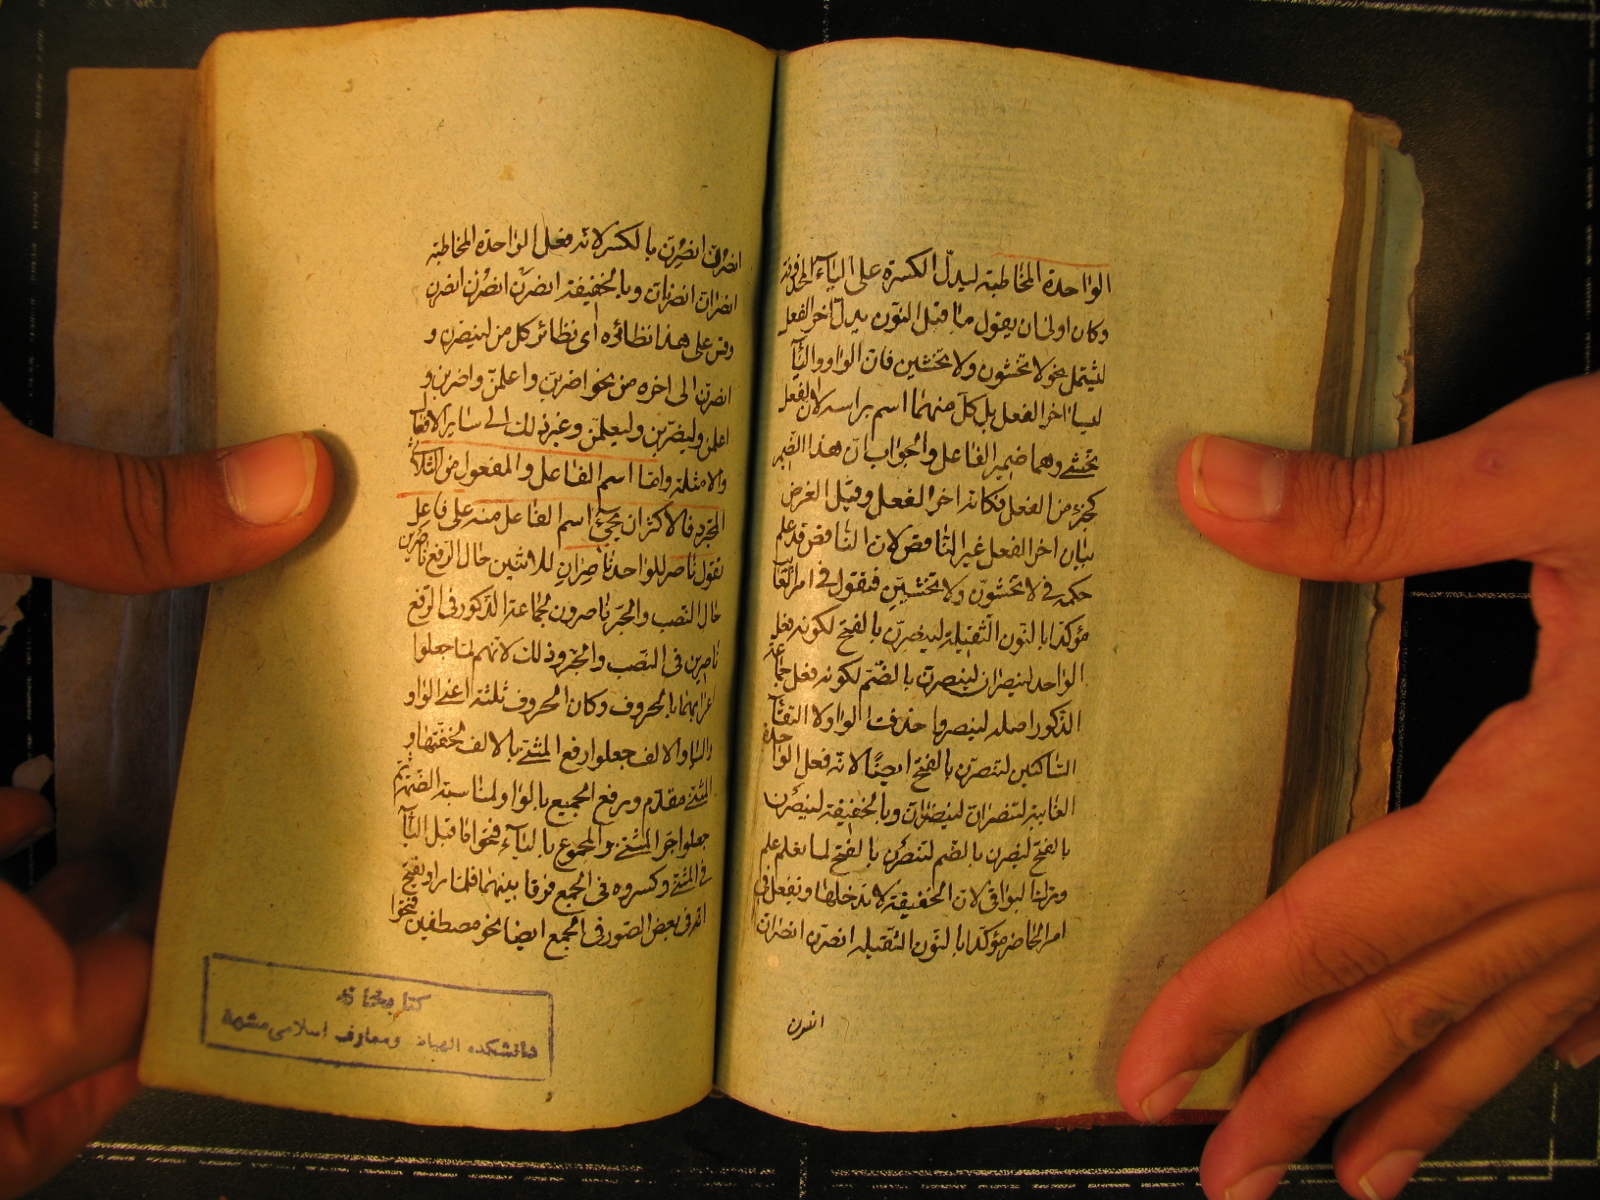 الواحدة المخاطبة ليدلّ الكسرة على الياء المحذوفة
وكان اولى ان يقول ما قبل النون بدل آخر الفعل
ليشمل نحو لا تخشون ولا تخشين فان الواو والياء
ليسا آخر الفعل بل كل منهما اسم براسه لان الفعل
تخشى وهما ضمير الفاعل والجواب ان هذا الضمير
كجزء من الفعل فكانه اخر الفعل وقيل الغرض
بيان اخر الفعل غير الناقص لان الناقص قد علم
حكمه في لا تخشون ولا تخشين فتقول في امر الغائب
مؤكدا بالنون الثقيلة لينصرن بالفتح لكونه فعل
الواحد لينصران لينصرن بالضم لكونه فعل جماعة
الذكور اصله لينصروا حذفت الواو لالتقاء
الساكنين لتنصرن بالفتح ايضا لانه فعل الواحدة
الغايبة لتنصران لينصرنان وبالخفيفة لينصرن
بالفتح لينصرن بالضم لتنصرن بالفتح لما تعلم
وترك البواقي لان الخفيفة لا تدخلها وتقول في
امر الحاضر مؤكدا بالنون الثقيلة انصرن انصران
انصرن
انصرن انصرن بالكسر لانه فعل الواحدة المخاطبة
انصران انصرنان وبالخفيفة انصرن انصرن انصرن
وقس على هذا نظائره اى نظائر كل من لينصرن و
انصرن الى اخره من نحو اضربن واعلمن واضربن و
اعلمن وليضربن وليعلمن وغير ذلك الى ساير الافعال
والامثلة واما اسم الفاعل والمفعول من الثلاثى
المجرد فالاكثر ان يجىء اسم الفاعل منه على فاعل
تقول ناصر للواحد ناصران للاثنين حال الرفع ناصرين
حال النصب والجر ناصرون لجماعة الذكور فى الرفع
ناصرين فى النصب والجر وذلك لانهم لما جعلوا
اعرابهما بالحروف وكان الحروف ثلثة اعنى الواو
والياء والالف جعلوا رفع المثنى بالالف لخفتها و
المثنى مقدم ورفع الجميع بالواو لمناسبة الضمة ثم
جعلوا جر المثنى والمجموع بالياء وفتحوا ما قبل الياء
فى المثنى وكسروه فى الجمع فرقا بينهما فلما راو يفتح
فى بعض الصور فى الجمع ايضا نحو مصطفين فتحوا
كتابخانه
دانشكده الهيات ومعارف اسلامى مشهد